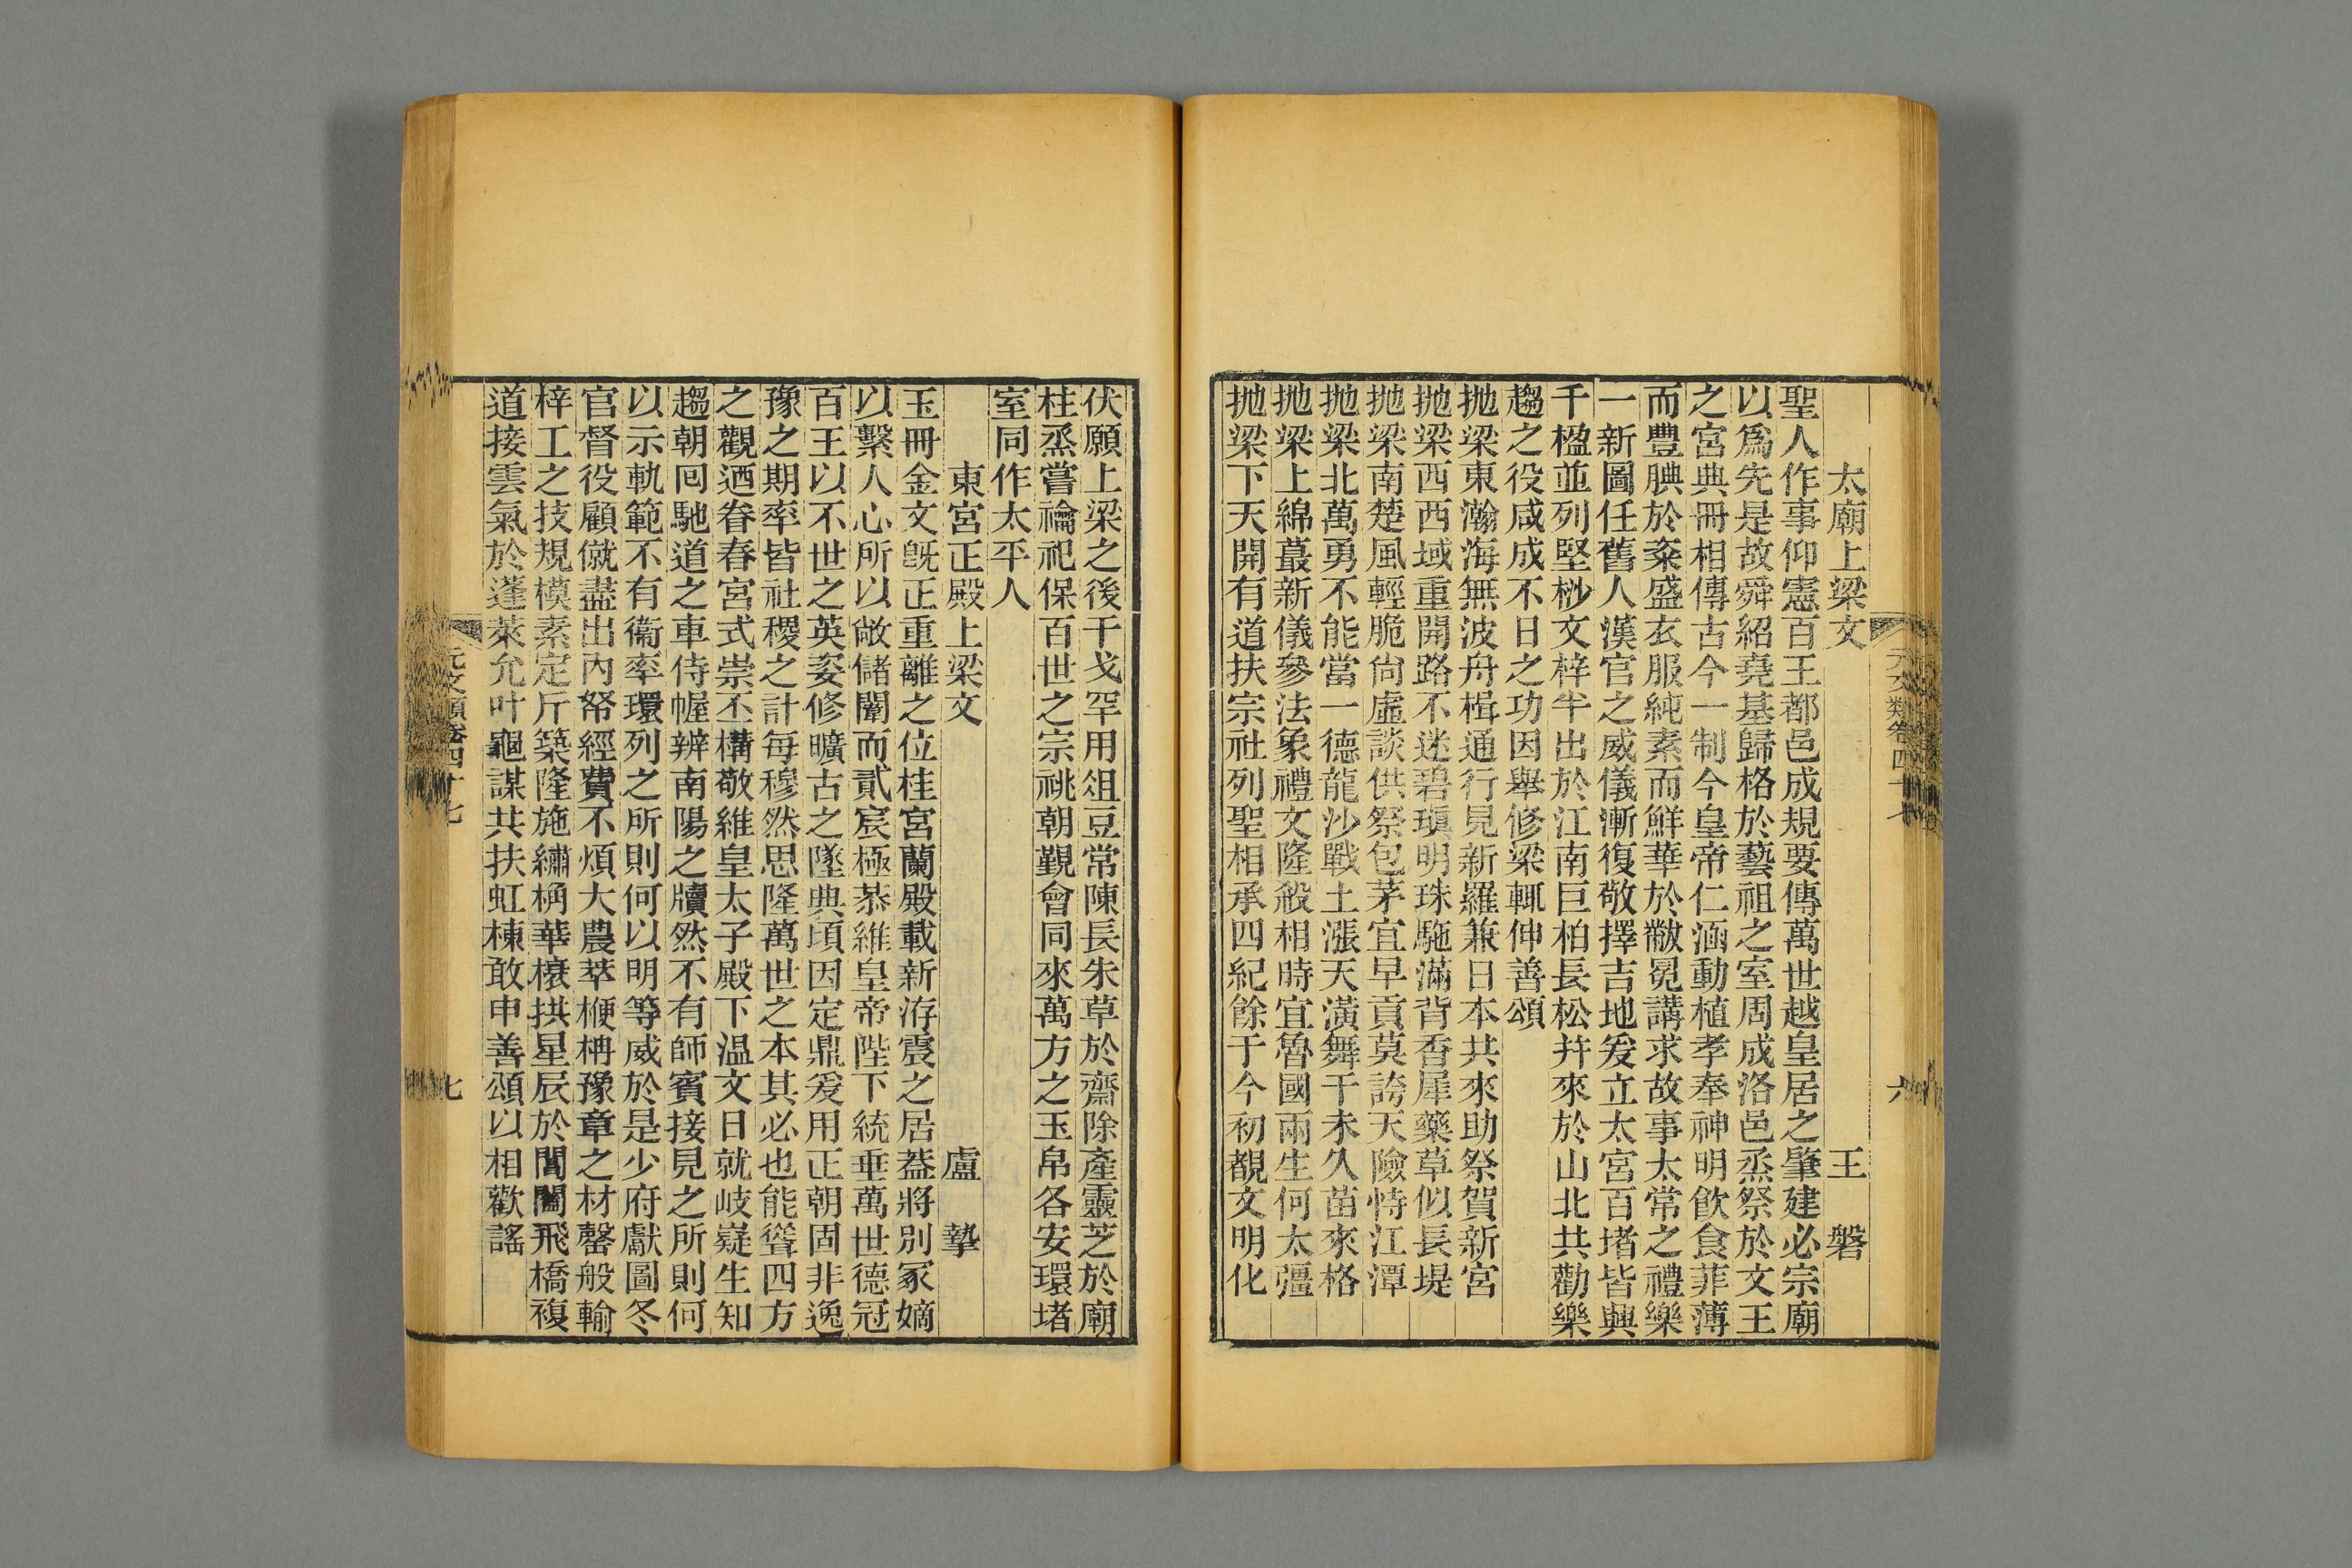 元文類卷四十七
六
太廟上梁文 王磐
聖人作事仰憲百王都邑成規要傳萬世越皇居之肇建必宗廟
以爲先是故舜紹堯基歸格於藝祖之室周成洛邑烝祭於文王
之宮典冊相傳古今一制今皇帝仁涵動植孝奉神明飮食菲薄
而豐腆於粢盛衣服純素而鮮華於黻冕講求故事太常之禮樂
一新圖任舊人漢官之威儀漸復敬擇吉地爰立太宮百堵皆興
千楹並列堅杪文梓半出於江南巨柏長松幷來於山北共勸樂
趨之役咸成不日之功因舉修梁輒伸善頌
拋梁東瀚海無波舟楫通行見新羅兼日本共來助祭賀新宮
拋梁西西域重開路不迷碧瑱明珠駞滿背香犀藥草似長堤
拋梁南楚風輕脆尙虛談供祭包茅宜早貢莫誇天險恃江潭
拋梁北萬勇不能當一德龍沙戰土漲天潢舞干未久苗來格
拋梁上綿蕞新儀參法象禮文隆殺相時宜魯國兩生何太彊
拋梁下天開有道扶宗社列聖相承四紀餘于今初覩文明化
伏願上梁之後干戈罕用俎豆常陳長朱草於齋除產靈芝於廟
柱烝嘗禴祀保百世之宗祧朝覲會同來萬方之玉帛各安環堵
室同作太平人
東宮正殿上梁文 盧摯
玉冊金文旣正重離之位桂宮蘭殿載新洊震之居葢將別冢嫡
以繫人心所以敞儲闈而貳宸極恭維皇帝陛下統垂萬世德冠
百王以不世之英姿修曠古之墜典頃因定鼎爰用正朝固非逸
豫之期率皆社稷之計每穆然思隆萬世之本其必也能聳四方
之觀迺眷春宮式崇丕構敬維皇太子殿下温文日就岐嶷生知
趨朝囘馳道之車侍幄辨南陽之牘然不有師賓接見之所則何
以示軌範不有衞率環列之所則何以明等威於是少府獻圖冬
官督役顧僦盡出內帑經費不煩大農萃楩枏豫章之材罄般輸
梓工之技規模素定斤築隆施繡桷華榱拱星辰於閶闔飛橋複
道接雲氣於蓬萊允叶龜謀共扶虹棟敢申善頌以相歡謠
元文類卷四十七
七